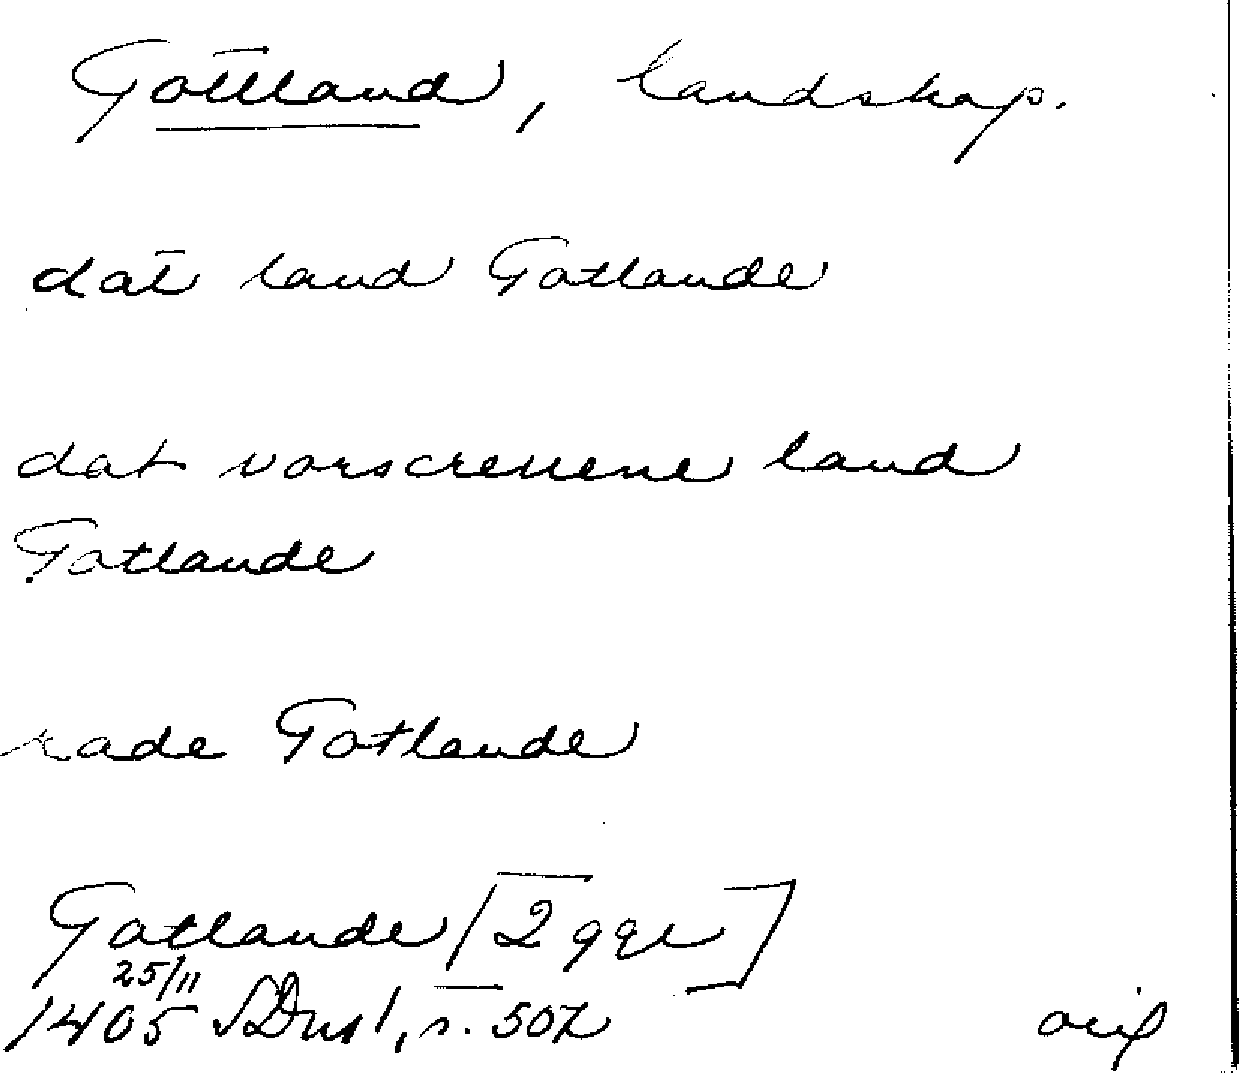 Gottland, landskap.
dat land Gotlande
dat vorscreuene land
Gotlande
rade Gotlande
Gotlande [2 ggr]
25/11
1405 SDns 1, s. 507
orig